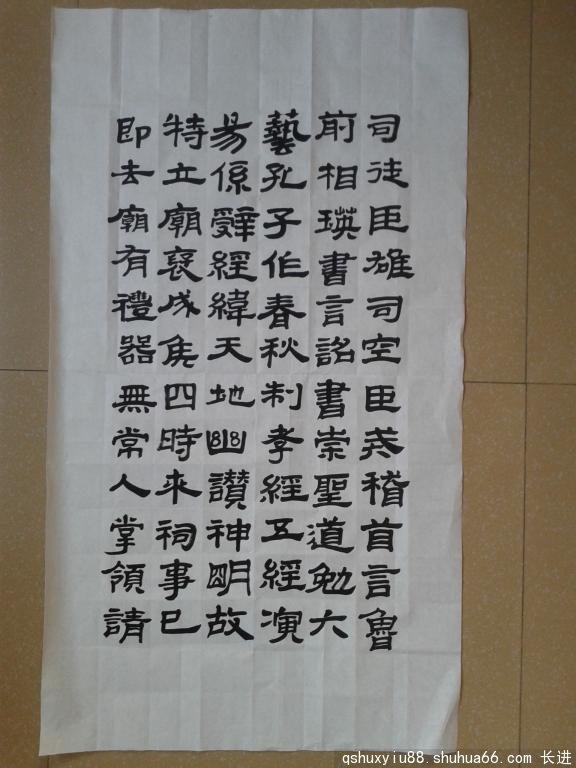 司徒臣雄司空臣戒稽首言魯
前相瑛書言詔書崇聖道勉大
藝孔子作春秋制孝經五經演
易係辭經緯天地幽讚神明故
特立廟褒成侯四時來祠事已
即去廟有禮器無常人掌領請
qshuxyiu88.shuhua66.com 长进